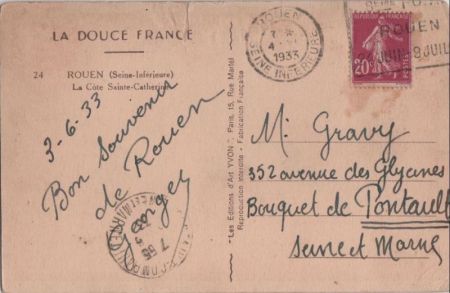 LA DOUCE FRANCE
24 ROUEN (Seine-Inférieure)
La Côte Sainte-Catherine
3-6-33
Bon Souvenir
de Rouen
"Les Editions d'Art YVON", Paris, 15, Rue Martel
Reproduction Interdite - Fabrication Française
ROUEN
4
1933
SEINE INFERIEURE
ROUEN
JUIN
JUIL
REPUBLIQUE FRANÇAISE
20c
M. Gravy
352 avenue des Glycines
Bouquet de Pontault
Seine et Marne